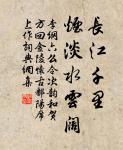 長江千里
煙淡水雲闊
李綱六么令次韻和賀
方回金陵懷古鄱陽席
上作詞典網集